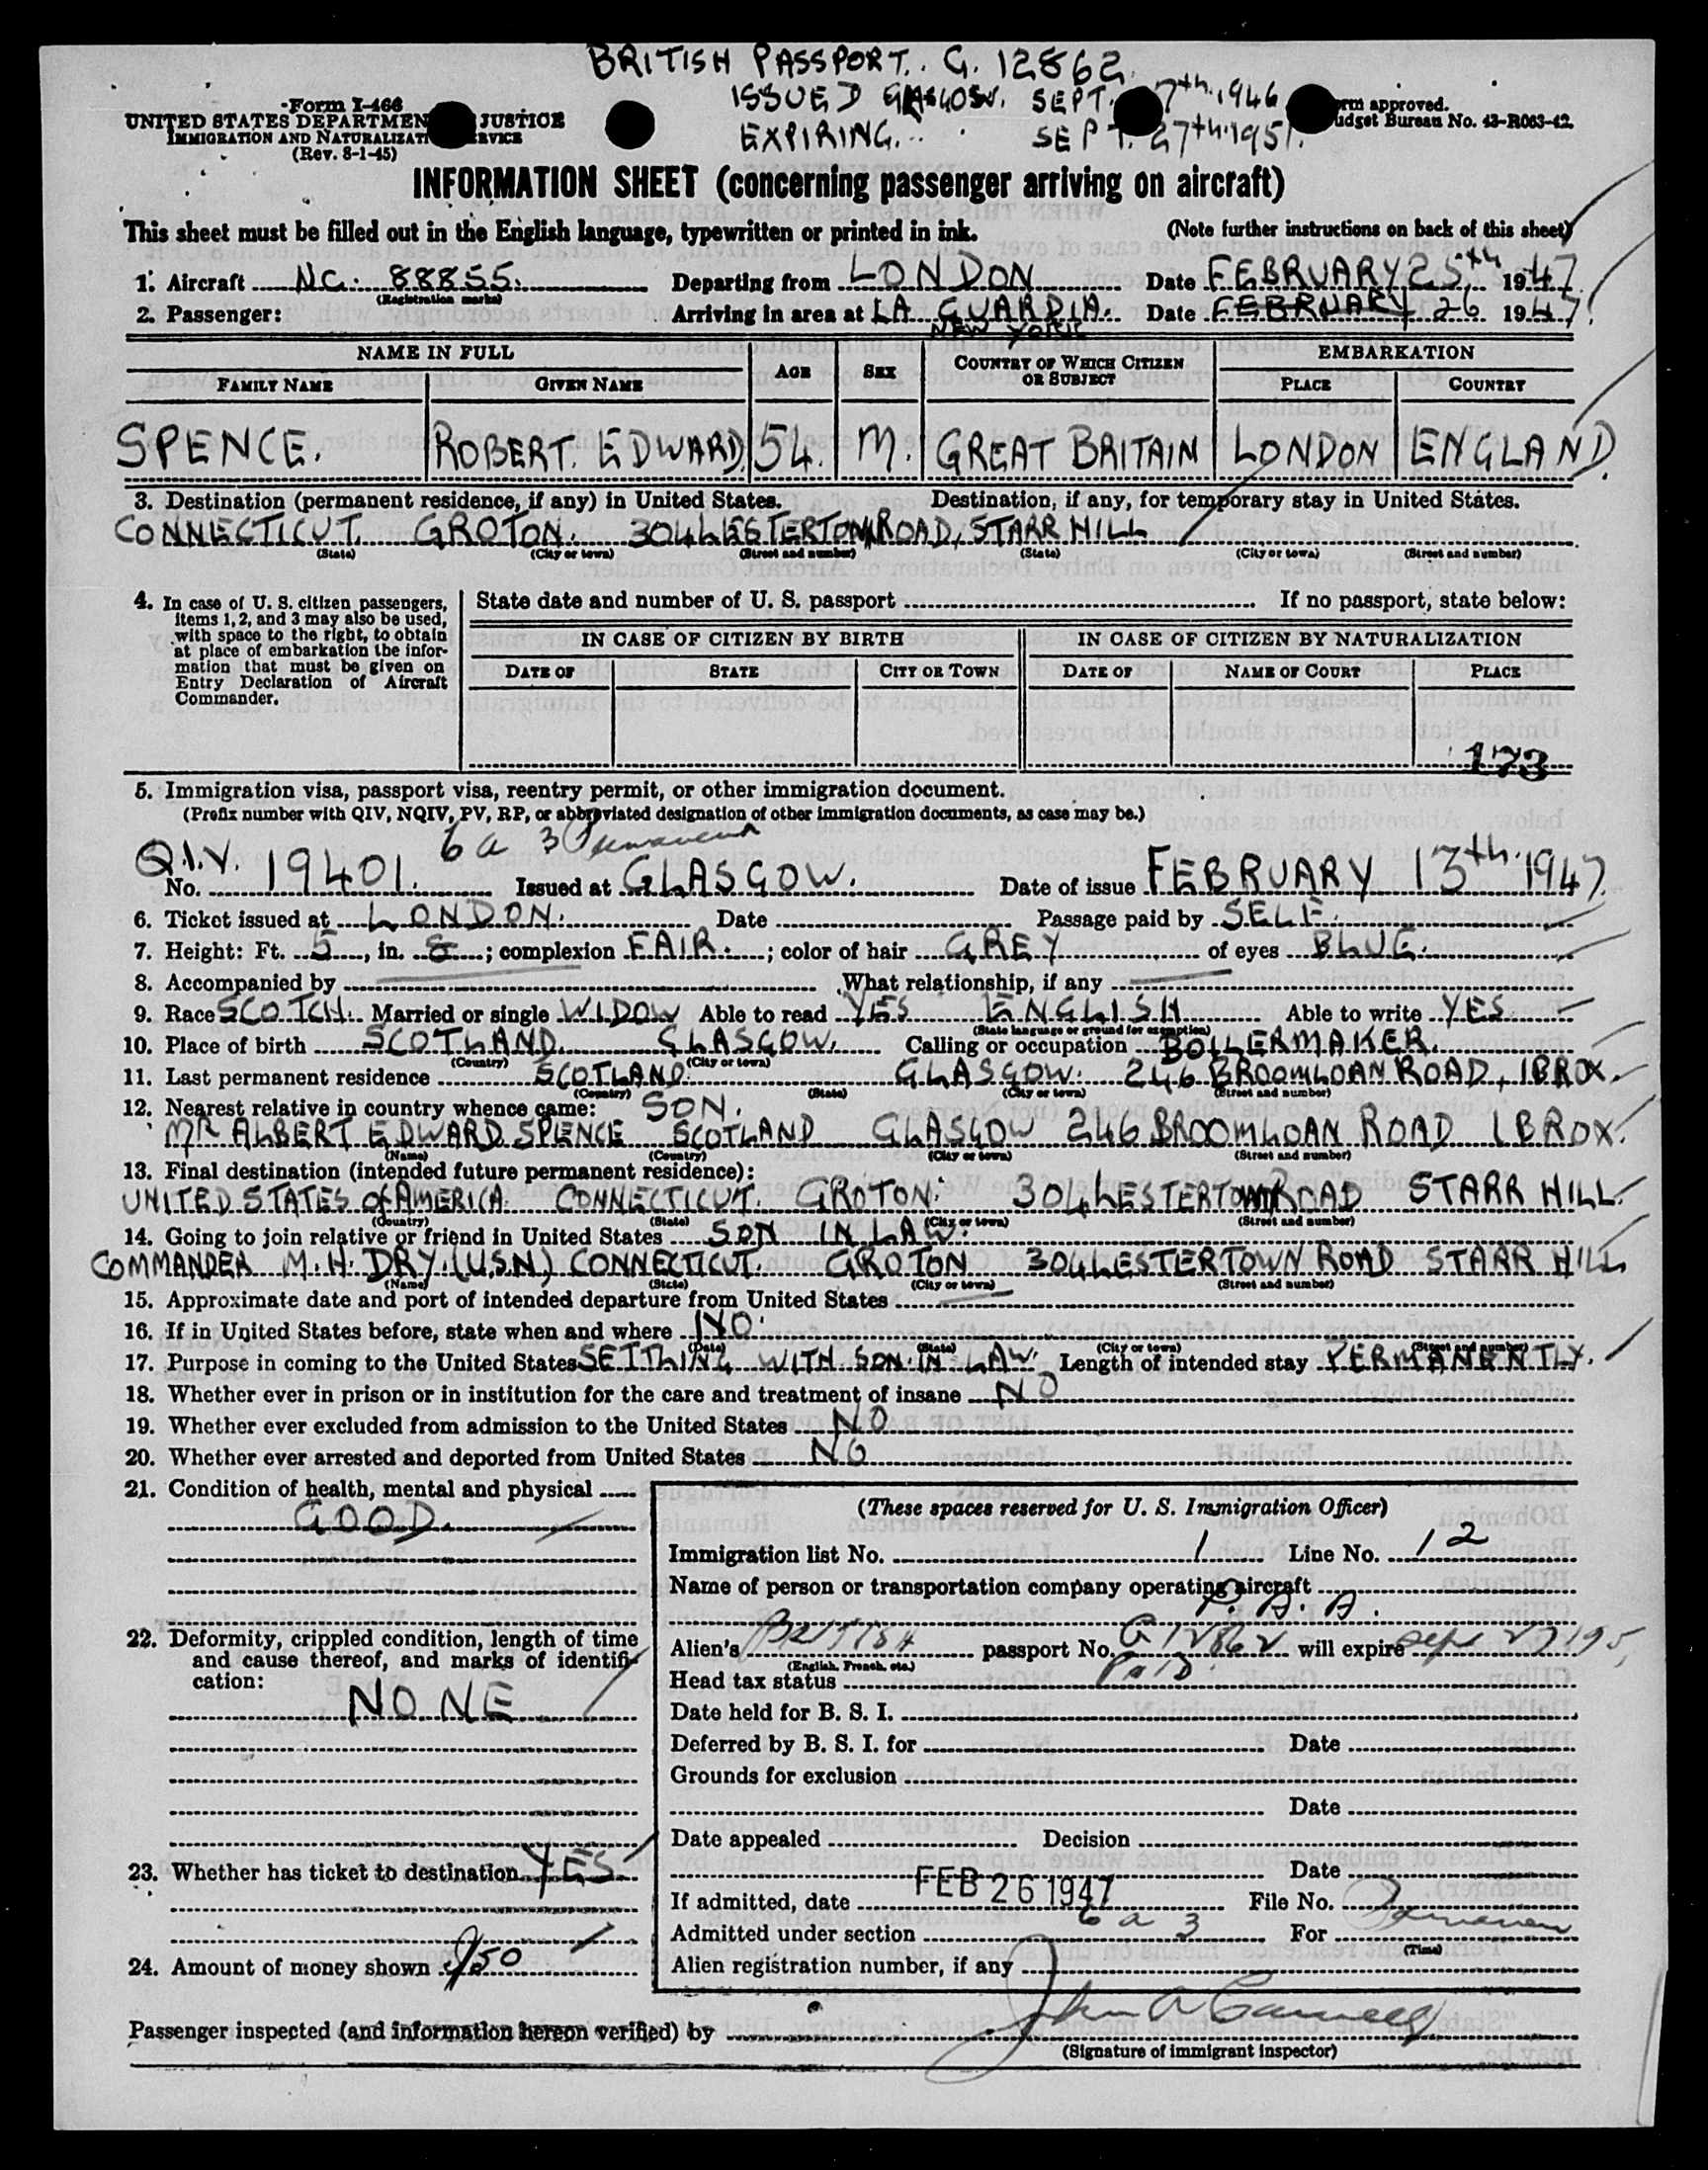 BRITISH PASSPORT. G. 12862.
ISSUED GLASGOW. SEPT. 7th. 1946
EXPIRING... SEPT. 27th. 1951.
Form I-466
UNITED STATES DEPARTMEN JUSTICE
IMMIGRATION AND NATURALIZATI ERVICE
(Rev. 8-1-45)
rm approved.
udget Bureau No. 43-R063-42.
INFORMATION SHEET (concerning passenger arriving on aircraft)
This sheet must be filled out in the English language, typewritten or printed in ink. (Note further instructions on back of this sheet)
1. Aircraft NC. 88855. Departing from LONDON Date FEBRUARY 25th 1947.
(Registration marks)
2. Passenger: Arriving in area at LA GUARDIA. Date FEBRUARY 26 1947.
NEW YORK
NAME IN FULL AGE SEX COUNTRY OF WHICH CITIZEN OR SUBJECT EMBARKATION
FAMILY NAME GIVEN NAME PLACE COUNTRY
SPENCE. ROBERT. EDWARD. 54. M. GREAT BRITAIN LONDON ENGLAND.
3. Destination (permanent residence, if any) in United States. Destination, if any, for temporary stay in United States.
CONNECTICUT. GROTON. 304 LESTERTOWN ROAD, STARR HILL
(State) (City or town) (Street and number) (State) (City or town) (Street and number)
4. In case of U. S. citizen passengers, items 1, 2, and 3 may also be used, with space to the right, to obtain at place of embarkation the information that must be given on Entry Declaration of Aircraft Commander.
State date and number of U. S. passport If no passport, state below:
IN CASE OF CITIZEN BY BIRTH IN CASE OF CITIZEN BY NATURALIZATION
DATE OF STATE CITY OR TOWN DATE OF NAME OF COURT PLACE
173
5. Immigration visa, passport visa, reentry permit, or other immigration document.
(Prefix number with QIV, NQIV, PV, RP, or abbreviated designation of other immigration documents, as case may be.)
6 a 3 Permanent
Q.I.V.
No. 19401. Issued at GLASGOW. Date of issue FEBRUARY 13th. 1947.
6. Ticket issued at LONDON. Date Passage paid by SELF.
7. Height: Ft. 5, in. 8; complexion FAIR.; color of hair GREY of eyes BLUE.
8. Accompanied by What relationship, if any
9. Race SCOTCH. Married or single WIDOW Able to read YES ENGLISH Able to write YES
(State language or ground for exemption)
10. Place of birth SCOTLAND. GLASGOW. Calling or occupation BOILERMAKER.
(Country) (City or town)
11. Last permanent residence SCOTLAND. GLASGOW. 246 BROOMLOAN ROAD, IBROX.
(Country) (State) (City or town) (Street and number)
12. Nearest relative in country whence came: SON.
MR ALBERT EDWARD SPENCE SCOTLAND GLASGOW 246 BROOMLOAN ROAD IBROX.
(Name) (Country) (City or town) (Street and number)
13. Final destination (intended future permanent residence):
UNITED STATES of AMERICA. CONNECTICUT. GROTON. 304 LESTERTOWN ROAD STARR HILL.
(Country) (State) (City or town) (Street and number)
14. Going to join relative or friend in United States SON IN LAW.
COMMANDER M. H. DRY. (U.S.N.) CONNECTICUT. GROTON 304 LESTERTOWN ROAD STARR HILL
(Name) (State) (City or town) (Street and number)
15. Approximate date and port of intended departure from United States
16. If in United States before, state when and where NO.
(Date) (State) (City or town) (Street and number)
17. Purpose in coming to the United States SETTLING WITH SON. IN LAW. Length of intended stay PERMANENTLY.
18. Whether ever in prison or in institution for the care and treatment of insane NO
19. Whether ever excluded from admission to the United States NO
20. Whether ever arrested and deported from United States NO
21. Condition of health, mental and physical
GOOD.
22. Deformity, crippled condition, length of time and cause thereof, and marks of identification:
NONE
23. Whether has ticket to destination YES
24. Amount of money shown $50
(These spaces reserved for U. S. Immigration Officer)
Immigration list No. 1 Line No. 12
Name of person or transportation company operating aircraft
P. A. A.
Alien's British passport No. G 12862 will expire Sept 27 195
(English, French, etc.)
Head tax status Paid
Date held for B. S. I.
Deferred by B. S. I. for Date
Grounds for exclusion
Date
Date appealed Decision
Date
If admitted, date FEB 26 1947 File No.
Admitted under section 6 a 3 For Permanent
(Time)
Alien registration number, if any
Passenger inspected (and information hereon verified) by John A
(Signature of immigrant inspector)